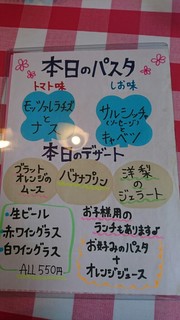 本日のパスタ
トマト味
モッツァレラチーズ
と
ナス
しお味
サルシッチャ
(ソーセージ)
と
キャベツ
本日のデザート
ブラット
オレンジの
ムース
バナナプリン
洋梨
の
ジェラート
・生ビール
・赤ワイングラス
・白ワイングラス
ALL 550円
お子様用の
ランチもありますよ
お好みのパスタ
+
オレンジジュース